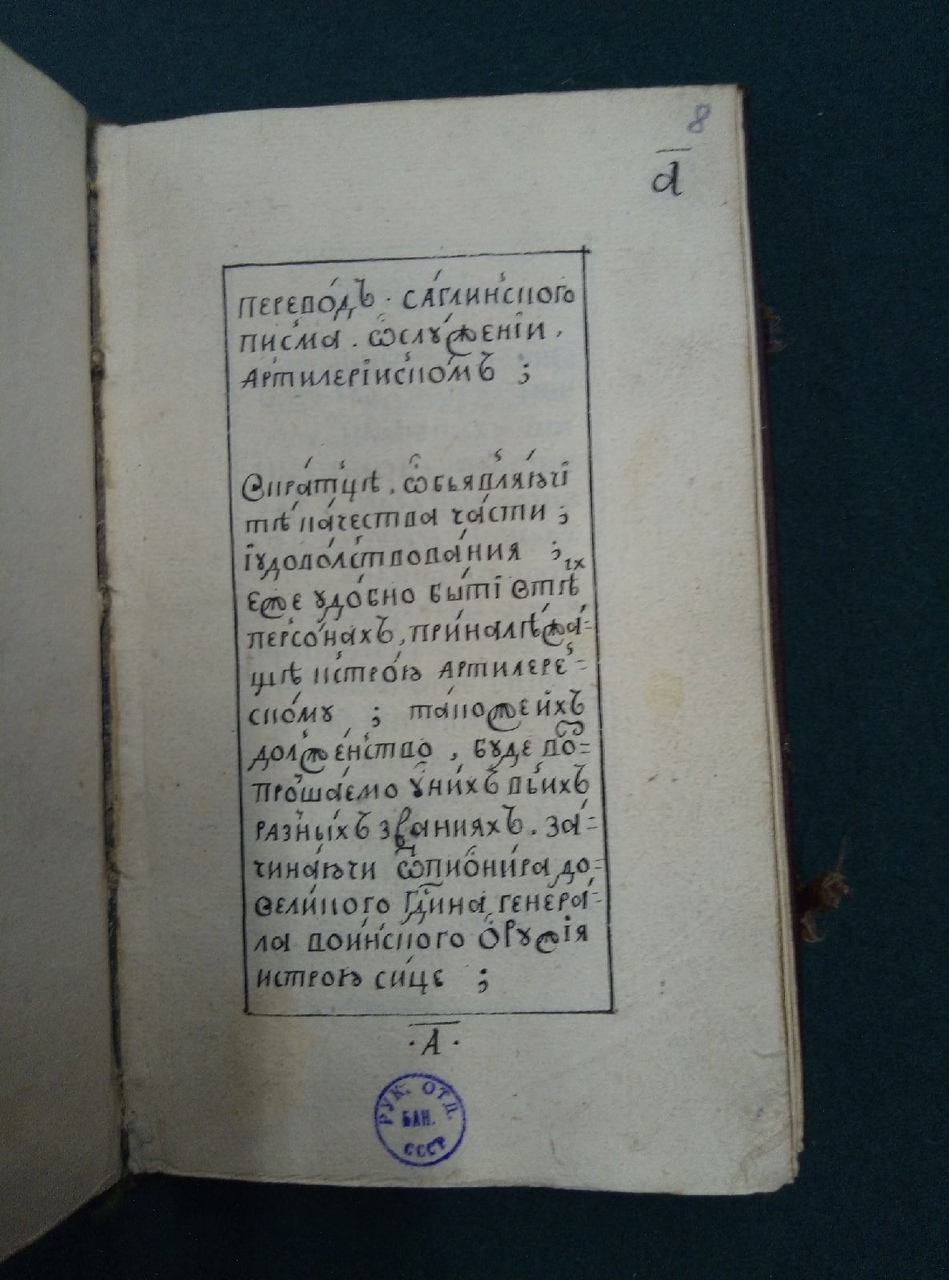 8
а҃
перево́дъ · са́глинского
писма . ѡслуже́нїи ,
артилерїискомъ ;
Вкра́тцѣ , ѡбьявлѧ́ючї
тѣ ка́чества ча́сти ;
їудово́лствова́ния ;
еже удо́бно бы́тї втѣх
персо́нахъ , прина́лѣжа́=
щѣ кстро́ю артилере́=
ско́му ; та́кожеи́хъ
долже́нство , бу́де во=
проша́емо ѹни́хъ вьихъ
ра́зныхъ званиѧхъ . за=
чина́ючи ѿпиѡни́ра до=
вели́кого гд҃ина генера́=
ла вои́нского ѻру́жїѧ
истрою си́це ;
· А҃ ·
РУК. ОТД.
БАН.
СССР